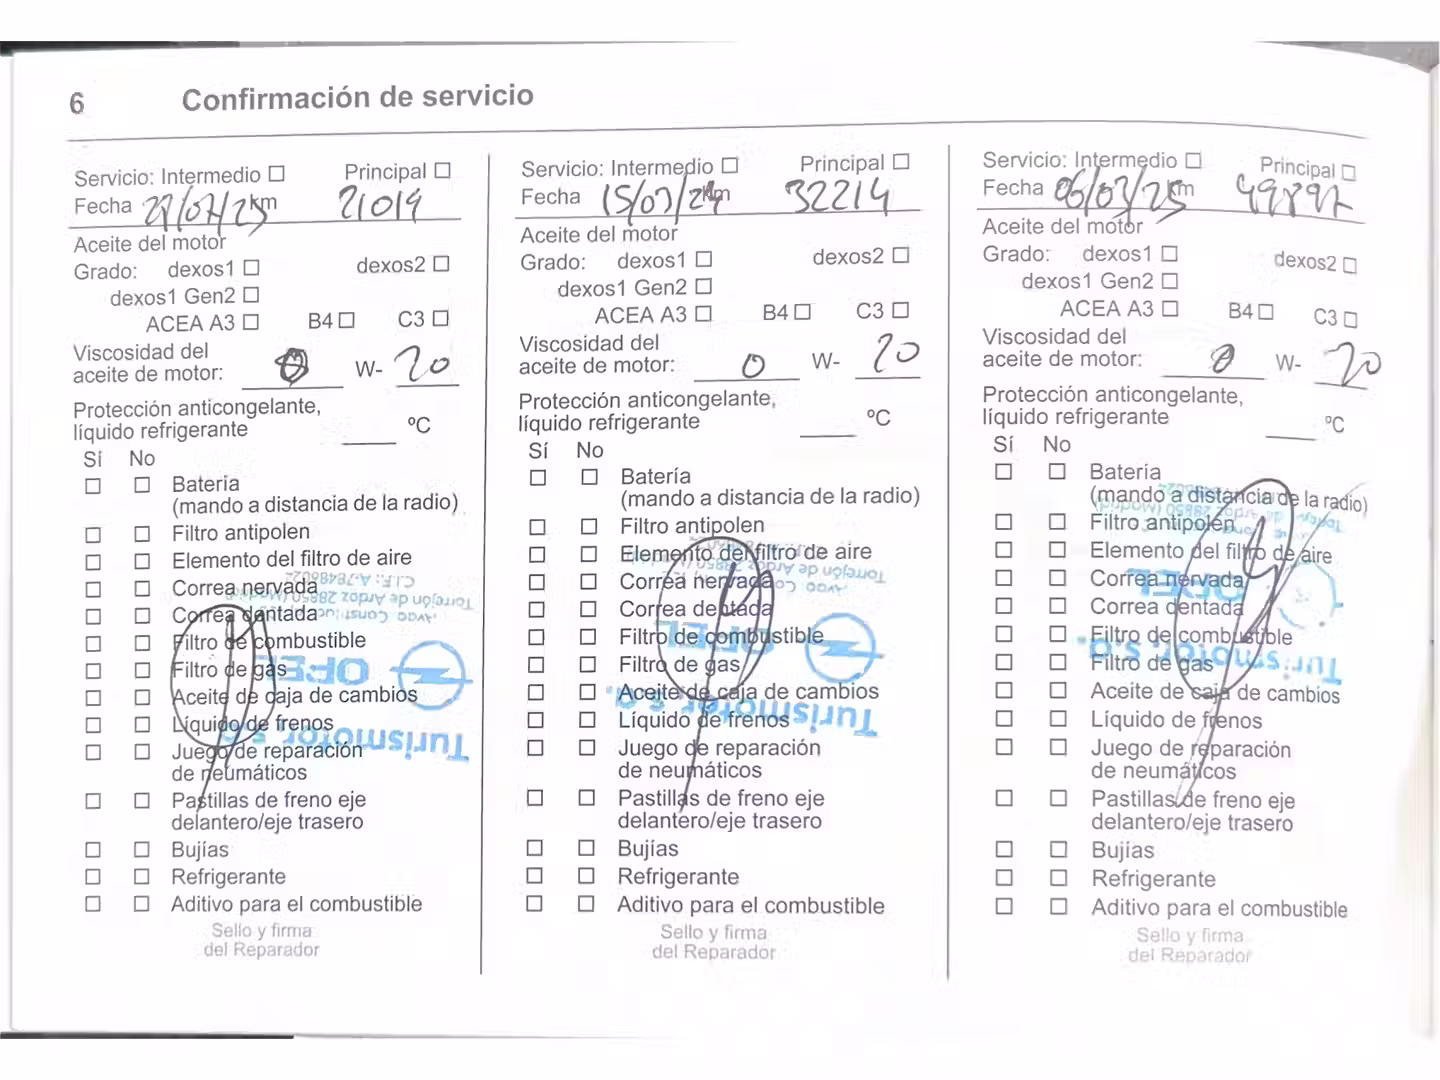 6 Confirmación de servicio
Servicio: Intermedio ☐ Principal ☐
Fecha 27/07/23 km 21019
Aceite del motor
Grado: dexos1 ☐ dexos2 ☐
dexos1 Gen2 ☐
ACEA A3 ☐ B4 ☐ C3 ☐
Viscosidad del
aceite de motor: 0 W- 20
Protección anticongelante,
líquido refrigerante ºC
Sí No
☐ ☐ Batería
(mando a distancia de la radio)
☐ ☐ Filtro antipolen
☐ ☐ Elemento del filtro de aire
☐ ☐ Correa nervada
☐ ☐ Correa dentada
☐ ☐ Filtro de combustible
☐ ☐ Filtro de gas
☐ ☐ Aceite de caja de cambios
☐ ☐ Líquido de frenos
☐ ☐ Juego de reparación
de neumáticos
☐ ☐ Pastillas de freno eje
delantero/eje trasero
☐ ☐ Bujías
☐ ☐ Refrigerante
☐ ☐ Aditivo para el combustible
Turismotor s.a.
OPEL
Torrejón de Ardoz 28850 (Madrid)
Sello y firma
del Reparador
Servicio: Intermedio ☐ Principal ☐
Fecha 15/07/24 km 32214
Aceite del motor
Grado: dexos1 ☐ dexos2 ☐
dexos1 Gen2 ☐
ACEA A3 ☐ B4 ☐ C3 ☐
Viscosidad del
aceite de motor: 0 W- 20
Protección anticongelante,
líquido refrigerante ºC
Sí No
☐ ☐ Batería
(mando a distancia de la radio)
☐ ☐ Filtro antipolen
☐ ☐ Elemento del filtro de aire
☐ ☐ Correa nervada
☐ ☐ Correa dentada
☐ ☐ Filtro de combustible
☐ ☐ Filtro de gas
☐ ☐ Aceite de caja de cambios
☐ ☐ Líquido de frenos
☐ ☐ Juego de reparación
de neumáticos
☐ ☐ Pastillas de freno eje
delantero/eje trasero
☐ ☐ Bujías
☐ ☐ Refrigerante
☐ ☐ Aditivo para el combustible
Turismotor s.a.
OPEL
Torrejón de Ardoz 28850
Sello y firma
del Reparador
Servicio: Intermedio ☐ Principal ☐
Fecha 06/03/25 km 49897
Aceite del motor
Grado: dexos1 ☐ dexos2 ☐
dexos1 Gen2 ☐
ACEA A3 ☐ B4 ☐ C3 ☐
Viscosidad del
aceite de motor: 0 W- 20
Protección anticongelante,
líquido refrigerante ºC
Sí No
☐ ☐ Batería
(mando a distancia de la radio)
☐ ☐ Filtro antipolen
☐ ☐ Elemento del filtro de aire
☐ ☐ Correa nervada
☐ ☐ Correa dentada
☐ ☐ Filtro de combustible
☐ ☐ Filtro de gas
☐ ☐ Aceite de caja de cambios
☐ ☐ Líquido de frenos
☐ ☐ Juego de reparación
de neumáticos
☐ ☐ Pastillas de freno eje
delantero/eje trasero
☐ ☐ Bujías
☐ ☐ Refrigerante
☐ ☐ Aditivo para el combustible
Turismotor s.a.
OPEL
Torrejón de Ardoz 28850 (Madrid)
Sello y firma
del Reparador